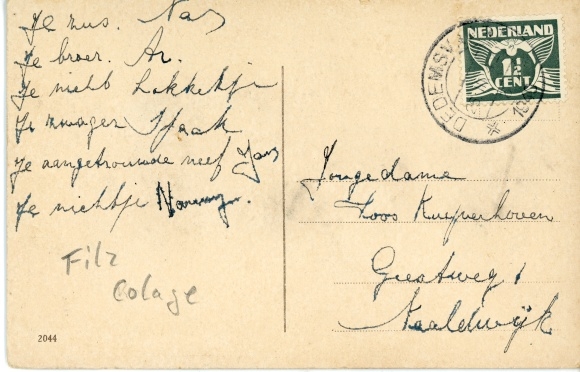 Je zus. Nas
Je broer. Ar.
Je nicht Lokketje
Je zwager Sjaak
Je aangetrouwde neef Jan
Je nichtje
Filz
Colage
2044
NEDERLAND
1½
CENT
DEDEMSV
Jongedame
Loos Kuyverhoven
Geestweg 1
Naaldwijk